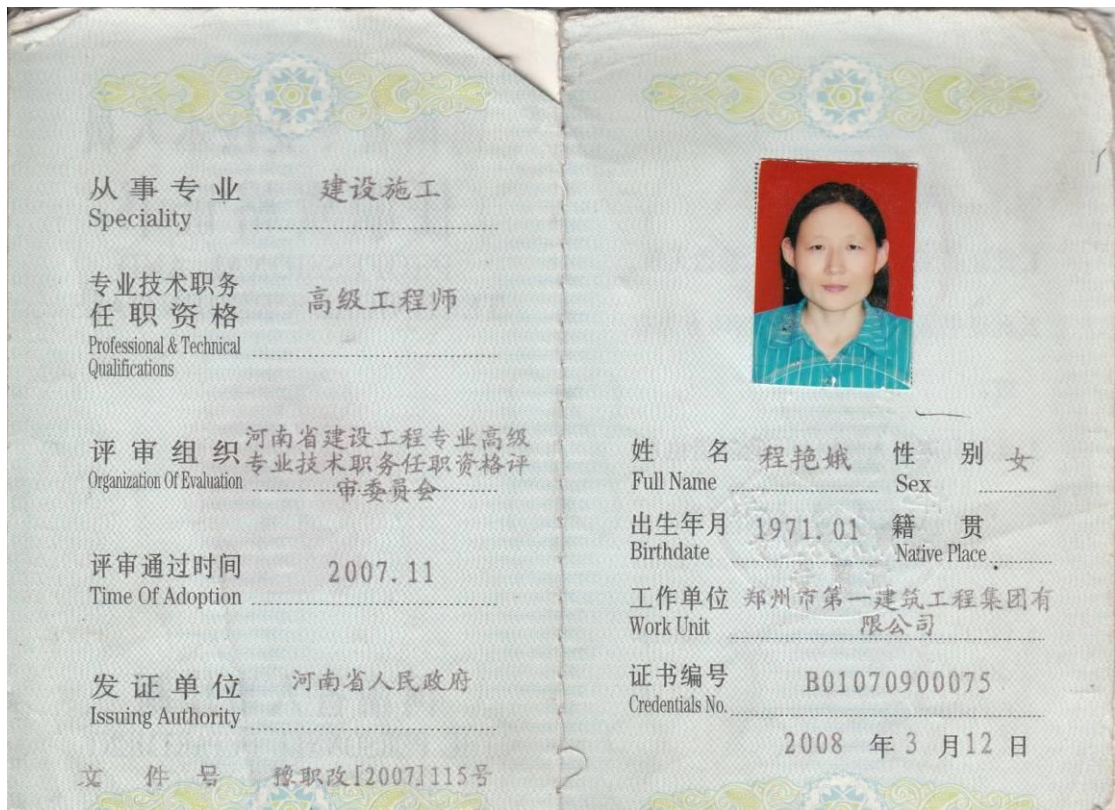 从事专业 建设施工
Speciality
专业技术职务
任职资格 高级工程师
Professional & Technical
Qualifications
评审组织 河南省建设工程专业高级
专业技术职务任职资格评
审委员会
Organization Of Evaluation
评审通过时间 2007.11
Time Of Adoption
发证单位 河南省人民政府
Issuing Authority
文件号 豫职改[2007]115号
姓名 程艳娥 性别 女
Full Name Sex
出生年月 1971.01 籍贯
Birthdate Native Place
工作单位 郑州市第一建筑工程集团有
限公司
Work Unit
证书编号 B01070900075
Credentials No.
2008 年 3 月 12 日